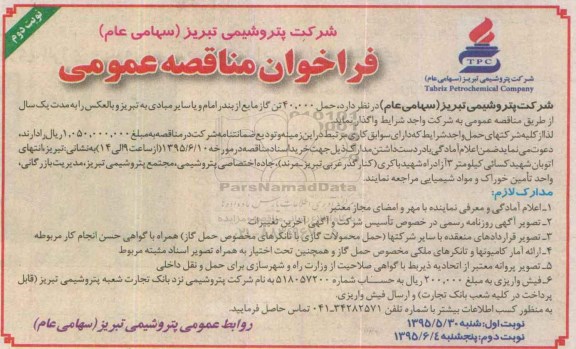 نوبت دوم
شرکت پتروشیمی تبریز (سهامی عام)
فراخوان مناقصه عمومی
TPC
شرکت پتروشیمی تبریز (سهامی عام)
Tabriz Petrochemical Company
شرکت پتروشیمی تبریز (سهامی عام) در نظر دارد، حمل ۴۰,۰۰۰ تن گاز مایع از بندر امام و یا سایر مبادی به تبریز و بالعکس را به مدت یک سال
از طریق مناقصه عمومی به شرکت واجد شرایط واگذار نماید.
لذا از کلیه شرکتهای حمل واجد شرایط که دارای سوابق کاری مرتبط در این زمینه و تودیع ضمانتنامه شرکت در مناقصه به مبلغ ۱,۰۵۰,۰۰۰,۰۰۰ ریال را دارند،
دعوت می نماید ضمن اعلام آمادگی با در دست داشتن مدارک ذیل جهت خرید اسناد مناقصه در مورخه ۱۳۹۵/۶/۱۰ (از ساعت ۹ الی ۱۴) به نشانی: تبریز، انتهای
اتوبان شهید کسائی کیلومتر ۳ آزادراه شهید باکری (کنارگذر غربی تبریز_مرند)، جاده اختصاصی پتروشیمی، مجتمع پتروشیمی تبریز، مدیریت بازرگانی،
واحد تأمین خوراک و مواد شیمیایی مراجعه نمایند.
ParsNamadData
مدارک لازم:
۱_ اعلام آمادگی و معرفی نماینده با مهر و امضای مجاز معتبر
۲_ تصویر آگهی روزنامه رسمی در خصوص تأسیس شرکت و آگهی آخرین تغییرات
۳_ تصویر قراردادهای منعقده با سایر شرکتها (حمل محمولات گازی با تانکرهای مخصوص حمل گاز) همراه با گواهی حسن انجام کار مربوطه
۴_ ارائه آمار کامیونها و تانکرهای ملکی مخصوص حمل گاز و همچنین تحت اختیار به همراه تصویر اسناد مثبته مربوط
۵_ تصویر پروانه معتبر از اتحادیه ذیربط یا گواهی صلاحیت از وزارت راه و شهرسازی برای حمل و نقل داخلی
۶_ فیش واریزی به مبلغ ۲۰۰,۰۰۰ ریال به حساب شماره ۵۱۸۰۵۷۲۰۰ به نام شرکت پتروشیمی نزد بانک تجارت شعبه پتروشیمی تبریز (قابل
پرداخت در کلیه شعب بانک تجارت) و ارسال فیش واریزی.
به منظور کسب اطلاعات بیشتر با شماره تلفن ۳۴۲۸۲۵۷۱-۰۴۱ تماس حاصل فرمایید.
نوبت اول: شنبه ۱۳۹۵/۵/۳۰
نوبت دوم: پنجشنبه ۱۳۹۵/۶/۴
روابط عمومی پتروشیمی تبریز (سهامی عام)